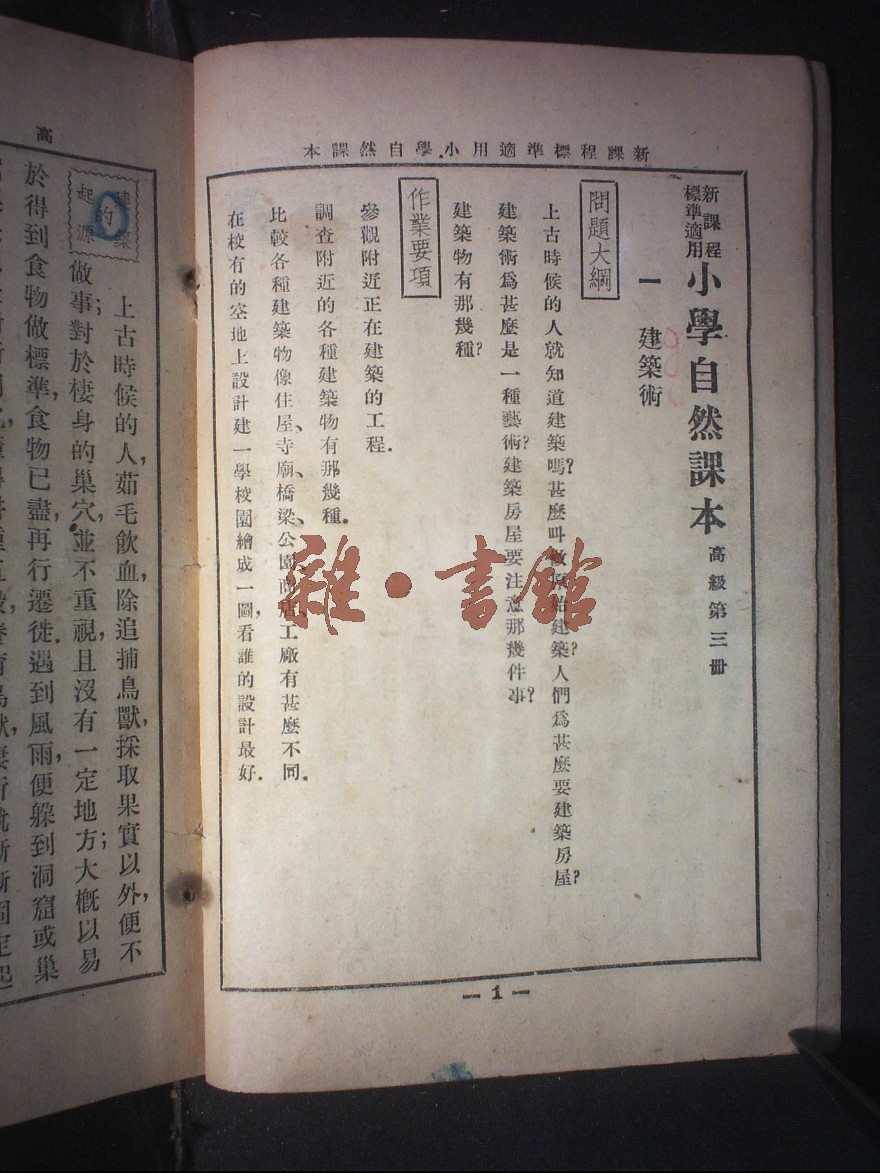 新課程標準適用小學自然課本
新課程標準適用 小學自然課本 高級第三冊
一 建築術
問題大綱
上古時候的人就知道建築嗎?甚麼叫做原始建築?人們爲甚麼要建築房屋?
建築術爲甚麼是一種藝術?建築房屋要注意那幾件事?
建築物有那幾種?
作業要項
參觀附近正在建築的工程.
調查附近的各種建築物有那幾種.
比較各種建築物像住屋、寺廟、橋梁、公園、商店、工廠有甚麼不同.
在校有的空地上設計建一學校園繪成一圖,看誰的設計最好.
— 1 —
雜·書館
高
建築的起源
上古時候的人,茹毛飲血,除追捕鳥獸,採取果實以外,便不
做事;對於棲身的巢穴,並不重視,且沒有一定地方;大概以易
於得到食物做標準,食物已盡,再行遷徙.遇到風雨,便躲到洞窟或巢